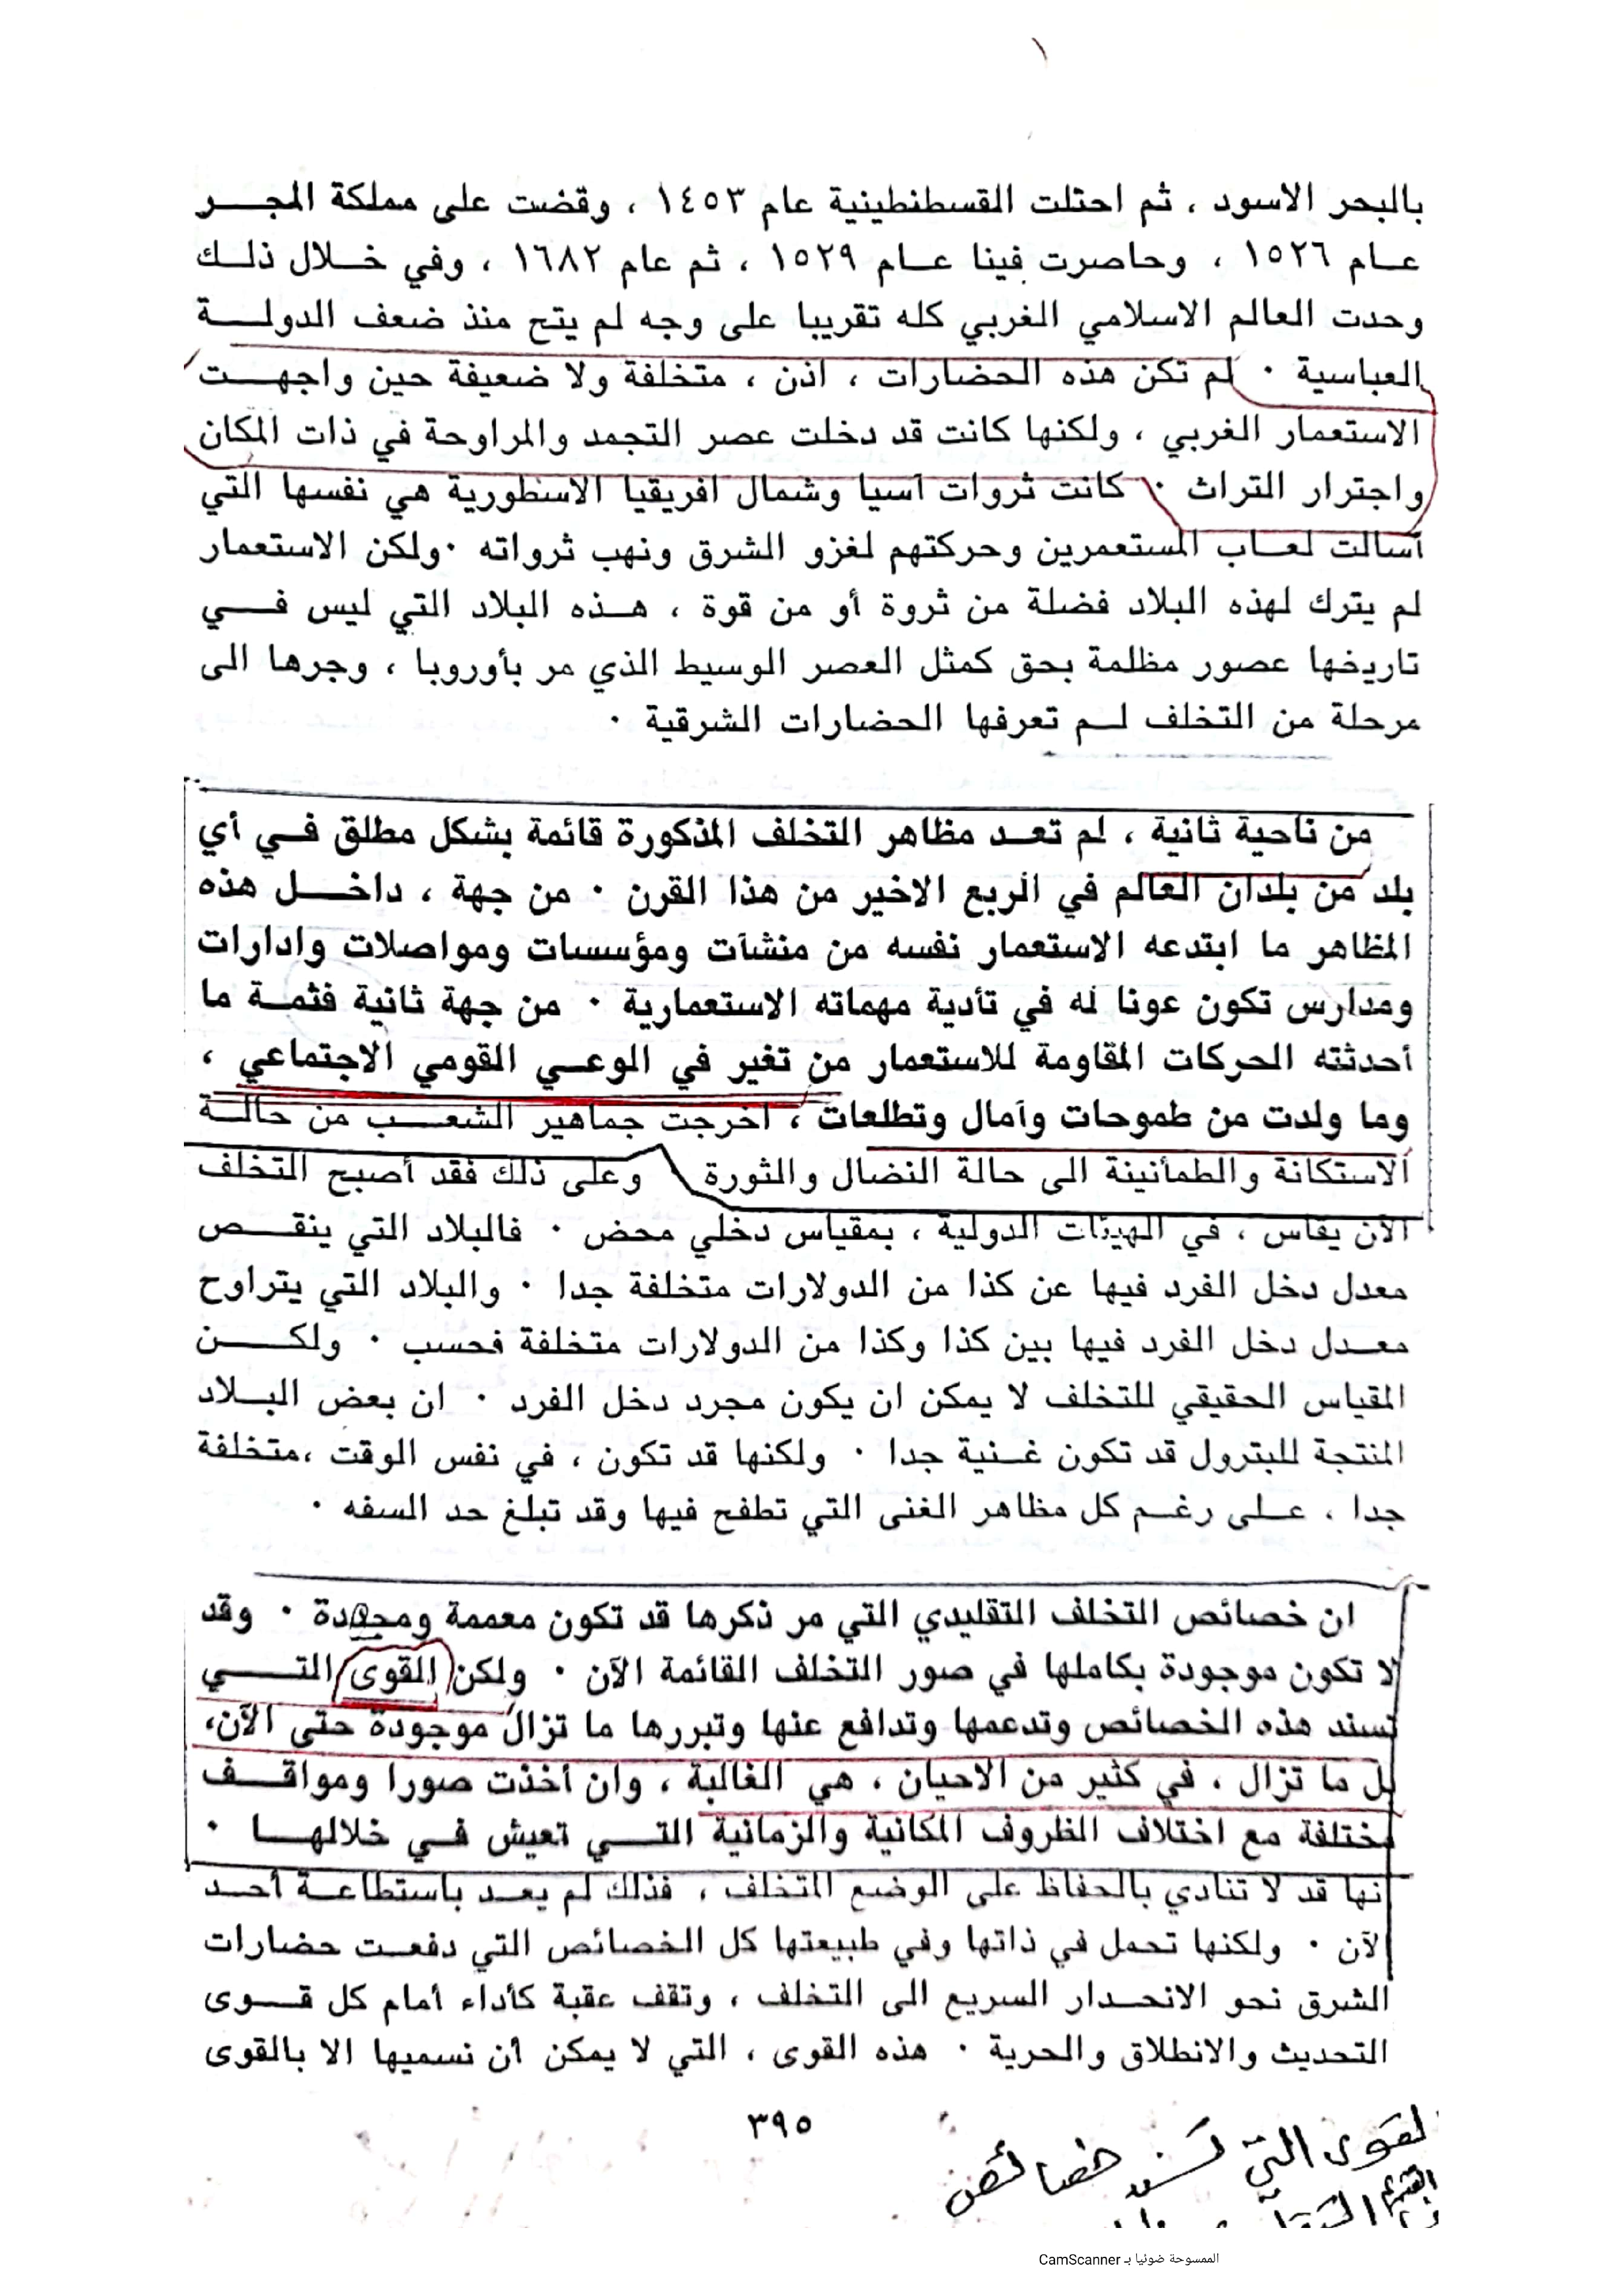 بالبحر الاسود ، ثم احتلت القسطنطينية عام ١٤٥٣ ، وقضت على مملكة المجر
عام ١٥٢٦ ، وحاصرت فينا عام ١٥٢٩ ، ثم عام ١٦٨٢ ، وفي خلال ذلك
وحدت العالم الاسلامي الغربي كله تقريبا على وجه لم يتح منذ ضعف الدولة
العباسية . لم تكن هذه الحضارات ، اذن ، متخلفة ولا ضعيفة حين واجهت
الاستعمار الغربي ، ولكنها كانت قد دخلت عصر التجمد والمراوحة في ذات المكان
واجترار التراث . كانت ثروات آسيا وشمال افريقيا الاسطورية هي نفسها التي
أسالت لعاب المستعمرين وحركتهم لغزو الشرق ونهب ثرواته . ولكن الاستعمار
لم يترك لهذه البلاد فضلة من ثروة أو من قوة ، هذه البلاد التي ليس في
تاريخها عصور مظلمة بحق كمثل العصر الوسيط الذي مر بأوروبا ، وجرها الى
مرحلة من التخلف لم تعرفها الحضارات الشرقية .
من ناحية ثانية ، لم تعد مظاهر التخلف المذكورة قائمة بشكل مطلق في أي
بلد من بلدان العالم في الربع الاخير من هذا القرن . من جهة ، داخل هذه
المظاهر ما ابتدعه الاستعمار نفسه من منشآت ومؤسسات ومواصلات وادارات
ومدارس تكون عونا له في تأدية مهماته الاستعمارية . من جهة ثانية فثمة ما
أحدثته الحركات المقاومة للاستعمار من تغير في الوعي القومي الاجتماعي ،
وما ولدت من طموحات وآمال وتطلعات ، اخرجت جماهير الشعب من حالة
الاستكانة والطمأنينة الى حالة النضال والثورة وعلى ذلك فقد أصبح التخلف
الآن يقاس ، في الهيئات الدولية ، بمقياس دخلي محض . فالبلاد التي ينقص
معدل دخل الفرد فيها عن كذا من الدولارات متخلفة جدا . والبلاد التي يتراوح
معدل دخل الفرد فيها بين كذا وكذا من الدولارات متخلفة فحسب . ولكن
المقياس الحقيقي للتخلف لا يمكن ان يكون مجرد دخل الفرد . ان بعض البلاد
المنتجة للبترول قد تكون غنية جدا . ولكنها قد تكون ، في نفس الوقت ،متخلفة
جدا ، على رغم كل مظاهر الغنى التي تطفح فيها وقد تبلغ حد السفه .
ان خصائص التخلف التقليدي التي مر ذكرها قد تكون معممة ومجردة . وقد
لا تكون موجودة بكاملها في صور التخلف القائمة الآن . ولكن القوى التي
تسند هذه الخصائص وتدعمها وتدافع عنها وتبررها ما تزال موجودة حتى الآن،
بل ما تزال ، في كثير من الاحيان ، هي الغالبة ، وان أخذت صورا ومواقف
مختلفة مع اختلاف الظروف المكانية والزمانية التي تعيش في خلالها .
انها قد لا تنادي بالحفاظ على الوضع المتخلف ، فذلك لم يعد باستطاعة أحد
الآن . ولكنها تحمل في ذاتها وفي طبيعتها كل الخصائص التي دفعت حضارات
الشرق نحو الانحدار السريع الى التخلف ، وتقف عقبة كأداء أمام كل قوى
التحديث والانطلاق والحرية . هذه القوى ، التي لا يمكن أن نسميها الا بالقوى
٣٩٥
لقوى التي تسند خصائص
الممسوحة ضوئيا بـ CamScanner